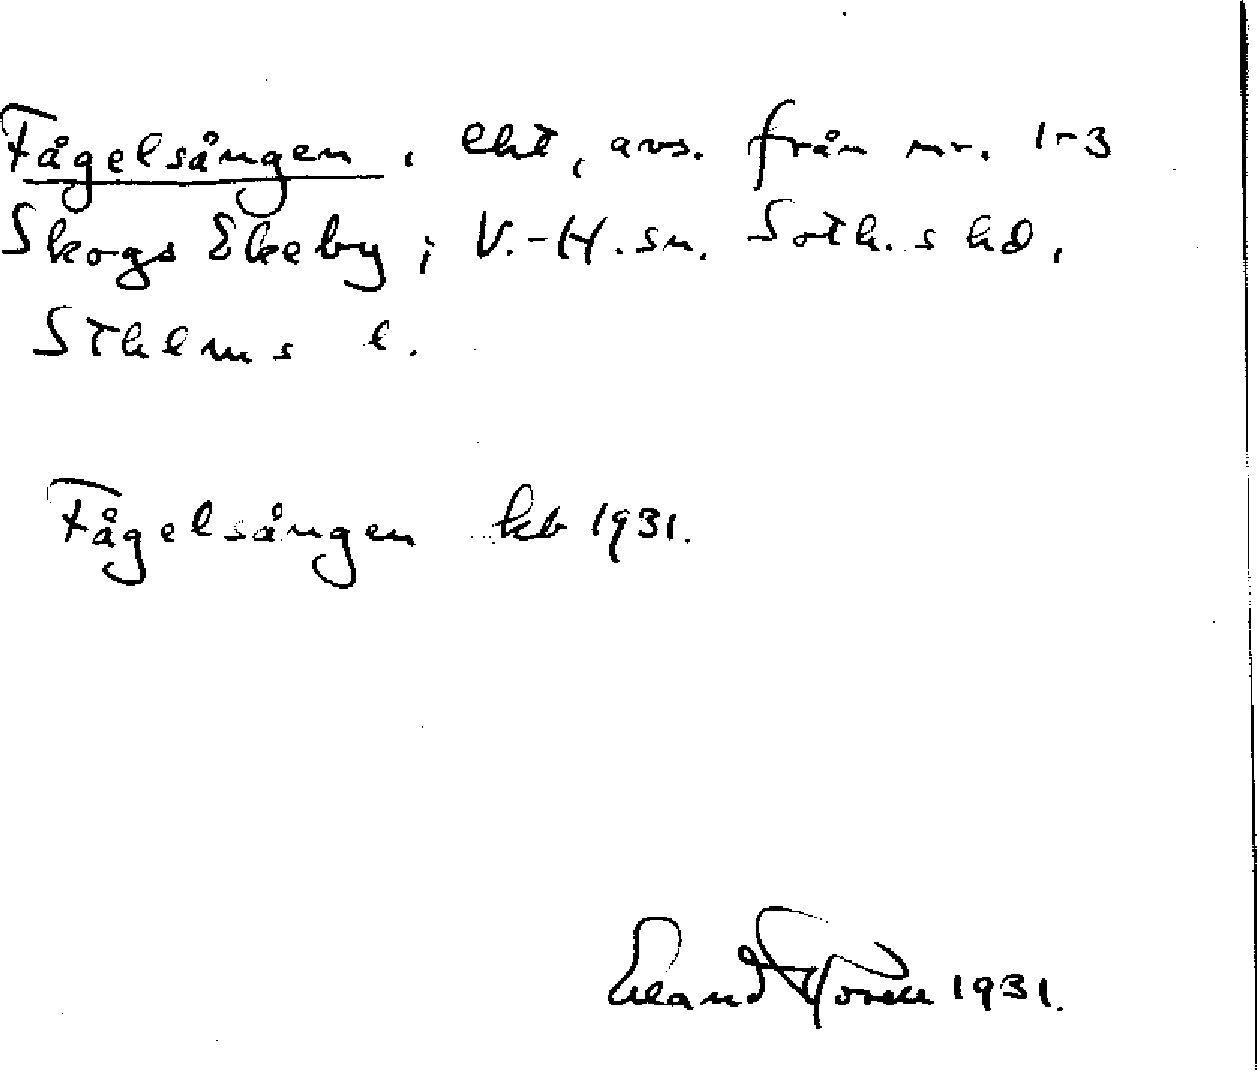 Fågelsången, lht, avs. från nr. 1-3
Skogs Ekeby i V.-H. sn. Soth. s hd,
Sthlms l.
Fågelsången kb 1931.
1931.